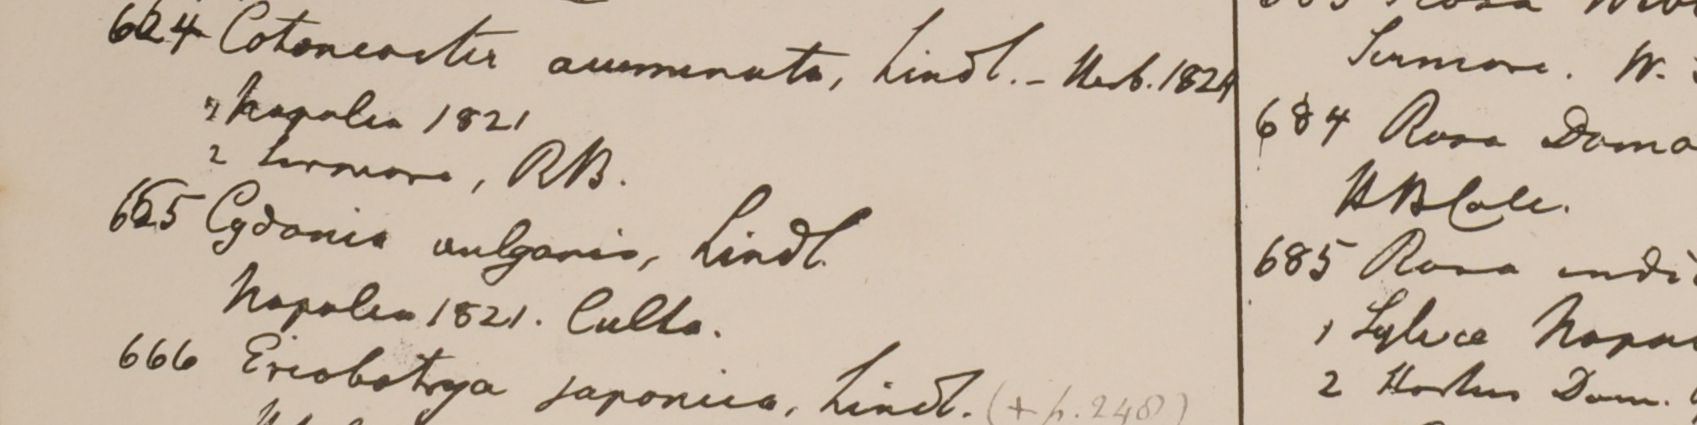 664 Cotoneaster acuminata, Lindl. - Herb. 1824
1 Napalia 1821
2 Sirmore, RB.
665 Cydonia vulgaris, Lindl.
Napalia 1821. Culta.
666 Eriobotrya japonica, Lindl. (+ p. 248)
Rosa
Sirmore. W.
684 Rosa Dama
HBCalc.
685 Rosa indi
1 Napa
2 Hortus Dom.